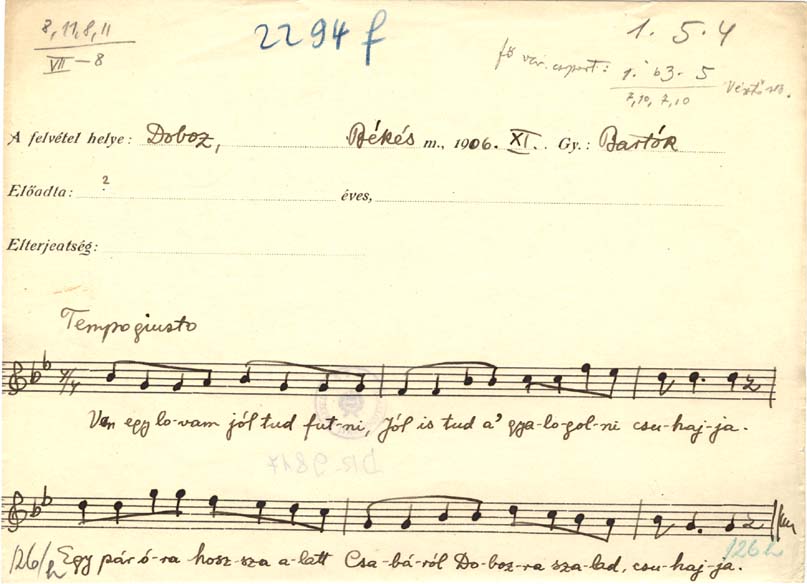 8, 11, 8, 11
VII – 8
2294 f
1. 5. 4
fő var. csoport: 1. b3. 5
7, 10, 7, 10
A felvétel helye: Doboz, Békés m., 1906. XI. Gy.: Bartók
Előadta: ? éves,
Elterjedtség:
Tempo giusto
4/4
Van egy lo-vam jól tud fut-ni, Jól is tud a' gya-lo-gol-ni csu-haj-ja.
Egy pár ó-ra hosz-sza a-latt Csa-bá-ról Do-boz-ra sza-lad, csu-haj-ja.
126/h
126 h